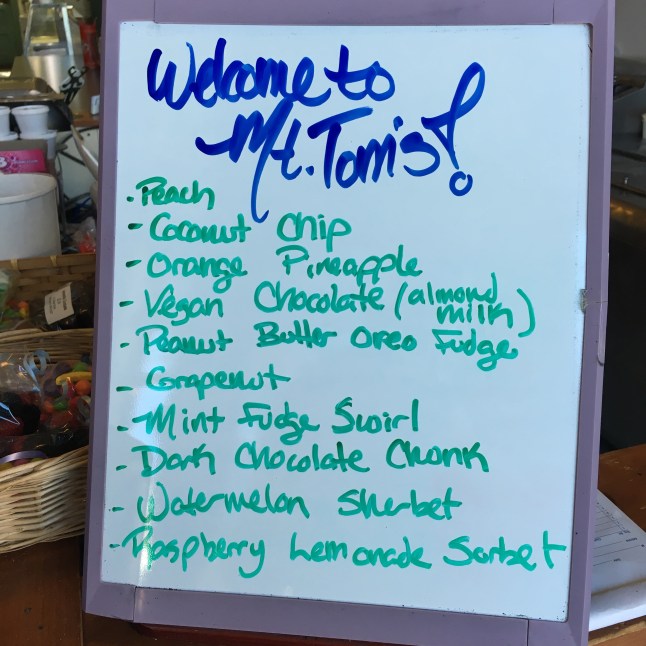 Welcome to
Mt. Tom's!
- Peach
- Coconut Chip
- Orange Pineapple
- Vegan Chocolate (almond
milk)
- Peanut Butter Oreo Fudge
- Grapenut
- Mint Fudge Swirl
- Dark Chocolate Chunk
- Watermelon Sherbet
- Raspberry Lemonade Sorbet